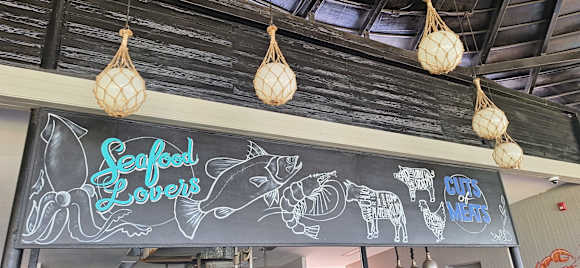 Seafood
Lovers
CUTS
of
MEATS